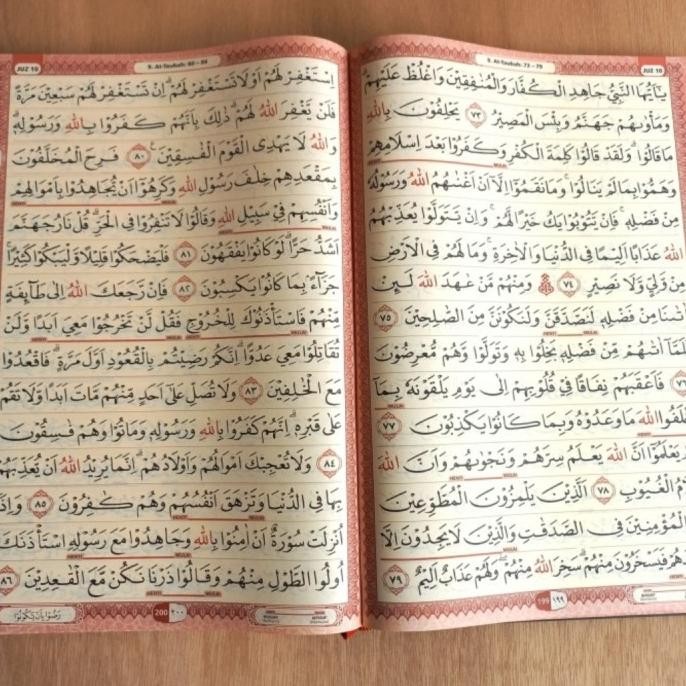 9. At-Taubah: 73 – 79
JUZ 10
يٰٓاَيُّهَا النَّبِيُّ جَاهِدِ الْكُفَّارَ وَالْمُنٰفِقِيْنَ وَاغْلُظْ عَلَيْهِمْۗ
وَمَأْوٰىهُمْ جَهَنَّمُۗ وَبِئْسَ الْمَصِيْرُ ٧٣ يَحْلِفُوْنَ بِاللّٰهِ
مَا قَالُوْاۗ وَلَقَدْ قَالُوْا كَلِمَةَ الْكُفْرِ وَكَفَرُوْا بَعْدَ اِسْلَامِهِمْ
وَهَمُّوْا بِمَا لَمْ يَنَالُوْاۚ وَمَا نَقَمُوْٓا اِلَّآ اَنْ اَغْنٰىهُمُ اللّٰهُ وَرَسُوْلُهٗ
مِنْ فَضْلِهٖۚ فَاِنْ يَّتُوْبُوْا يَكُ خَيْرًا لَّهُمْۚ وَاِنْ يَّتَوَلَّوْا يُعَذِّبْهُمُ
اللّٰهُ عَذَابًا اَلِيْمًا فِى الدُّنْيَا وَالْاٰخِرَةِۚ وَمَا لَهُمْ فِى الْاَرْضِ
مِنْ وَّلِيٍّ وَّلَا نَصِيْرٍ ٧٤ وَمِنْهُمْ مَّنْ عٰهَدَ اللّٰهَ لَىِٕنْ
اٰتٰىنَا مِنْ فَضْلِهٖ لَنَصَّدَّقَنَّ وَلَنَكُوْنَنَّ مِنَ الصّٰلِحِيْنَ ٧٥
فَلَمَّآ اٰتٰىهُمْ مِّنْ فَضْلِهٖ بَخِلُوْا بِهٖ وَتَوَلَّوْا وَّهُمْ مُّعْرِضُوْنَ
٧٦ فَاَعْقَبَهُمْ نِفَاقًا فِيْ قُلُوْبِهِمْ اِلٰى يَوْمِ يَلْقَوْنَهٗ بِمَآ
اَخْلَفُوا اللّٰهَ مَا وَعَدُوْهُ وَبِمَا كَانُوْا يَكْذِبُوْنَ ٧٧
يَعْلَمُوْٓا اَنَّ اللّٰهَ يَعْلَمُ سِرَّهُمْ وَنَجْوٰىهُمْ وَاَنَّ اللّٰهَ
الْغُيُوْبِ ٧٨ اَلَّذِيْنَ يَلْمِزُوْنَ الْمُطَّوِّعِيْنَ
الْمُؤْمِنِيْنَ فِى الصَّدَقٰتِ وَالَّذِيْنَ لَا يَجِدُوْنَ اِلَّا
فَيَسْخَرُوْنَ مِنْهُمْۗ سَخِرَ اللّٰهُ مِنْهُمْۖ وَلَهُمْ عَذَابٌ اَلِيْمٌ ٧٩
199 ١٩٩
JUZ 10
9. At-Taubah: 80 – 86
اِسْتَغْفِرْ لَهُمْ اَوْ لَا تَسْتَغْفِرْ لَهُمْۗ اِنْ تَسْتَغْفِرْ لَهُمْ سَبْعِيْنَ مَرَّةً
فَلَنْ يَّغْفِرَ اللّٰهُ لَهُمْۗ ذٰلِكَ بِاَنَّهُمْ كَفَرُوْا بِاللّٰهِ وَرَسُوْلِهٖۗ
وَاللّٰهُ لَا يَهْدِى الْقَوْمَ الْفٰسِقِيْنَ ٨٠ فَرِحَ الْمُخَلَّفُوْنَ
بِمَقْعَدِهِمْ خِلٰفَ رَسُوْلِ اللّٰهِ وَكَرِهُوْٓا اَنْ يُّجَاهِدُوْا بِاَمْوَالِهِمْ
وَاَنْفُسِهِمْ فِيْ سَبِيْلِ اللّٰهِ وَقَالُوْا لَا تَنْفِرُوْا فِى الْحَرِّۗ قُلْ نَارُ جَهَنَّمَ
اَشَدُّ حَرًّاۗ لَوْ كَانُوْا يَفْقَهُوْنَ ٨١ فَلْيَضْحَكُوْا قَلِيْلًا وَّلْيَبْكُوْا كَثِيْرًاۚ
جَزَاۤءًۢ بِمَا كَانُوْا يَكْسِبُوْنَ ٨٢ فَاِنْ رَّجَعَكَ اللّٰهُ اِلٰى طَاۤىِٕفَةٍ
مِّنْهُمْ فَاسْتَأْذَنُوْكَ لِلْخُرُوْجِ فَقُلْ لَّنْ تَخْرُجُوْا مَعِيَ اَبَدًا وَّلَنْ
تُقَاتِلُوْا مَعِيَ عَدُوًّاۗ اِنَّكُمْ رَضِيْتُمْ بِالْقُعُوْدِ اَوَّلَ مَرَّةٍۗ فَاقْعُدُوْا
مَعَ الْخٰلِفِيْنَ ٨٣ وَلَا تُصَلِّ عَلٰٓى اَحَدٍ مِّنْهُمْ مَّاتَ اَبَدًا وَّلَا تَقُمْ
عَلٰى قَبْرِهٖۗ اِنَّهُمْ كَفَرُوْا بِاللّٰهِ وَرَسُوْلِهٖ وَمَاتُوْا وَهُمْ فٰسِقُوْنَ
٨٤ وَلَا تُعْجِبْكَ اَمْوَالُهُمْ وَاَوْلَادُهُمْۗ اِنَّمَا يُرِيْدُ اللّٰهُ اَنْ يُّعَذِّبَهُمْ
بِهَا فِى الدُّنْيَا وَتَزْهَقَ اَنْفُسُهُمْ وَهُمْ كٰفِرُوْنَ ٨٥ وَاِذَآ
اُنْزِلَتْ سُوْرَةٌ اَنْ اٰمِنُوْا بِاللّٰهِ وَجَاهِدُوْا مَعَ رَسُوْلِهِ اسْتَأْذَنَكَ
اُولُوا الطَّوْلِ مِنْهُمْ وَقَالُوْا ذَرْنَا نَكُنْ مَّعَ الْقٰعِدِيْنَ ٨٦
رَضُوْا بِاَنْ يَّكُوْنُوْا
200 ٢٠٠